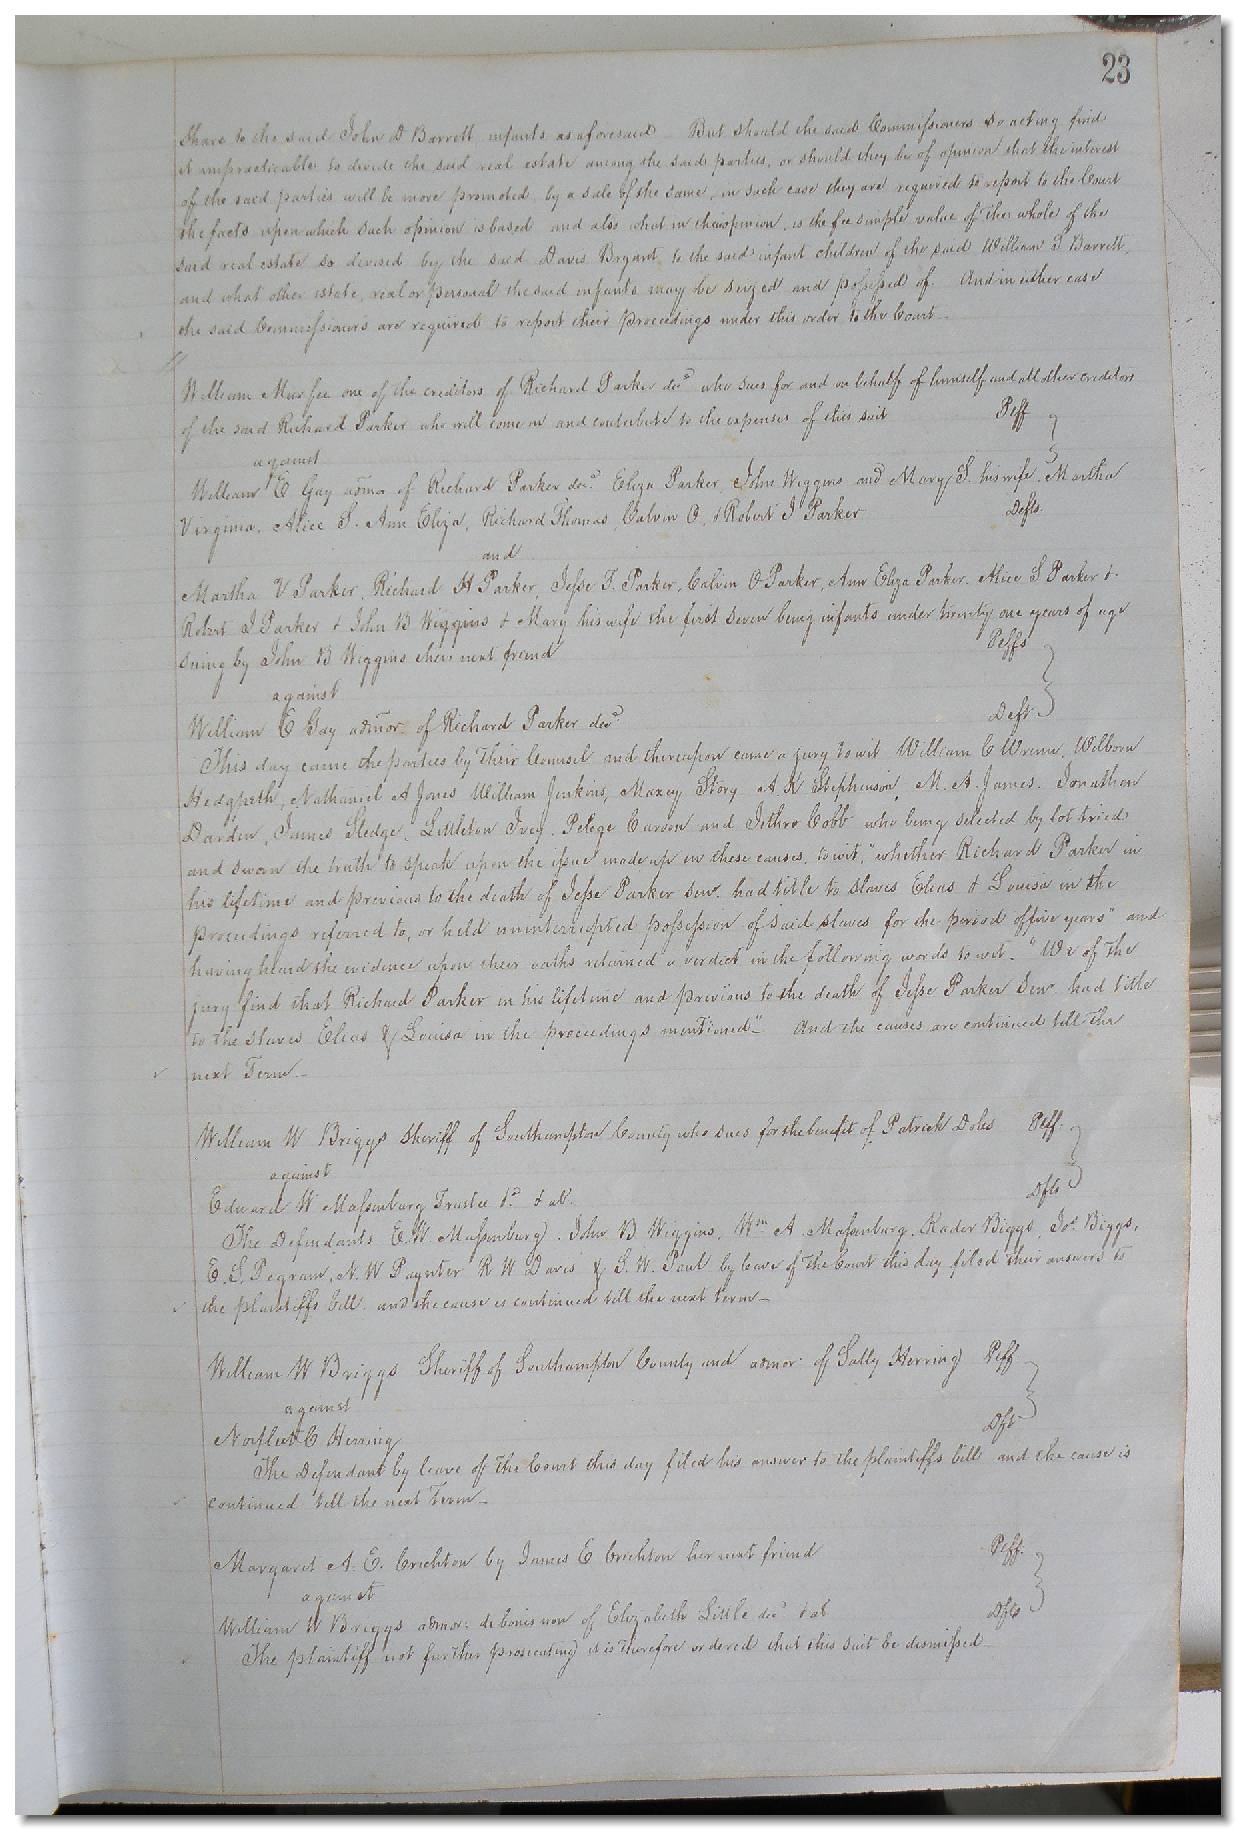 23
Share to the said John D Barrett infants as aforesaid But should the said Commissioners so acting find
it impracticable to divide the said real estate among the said parties, or should they be of opinion that the interest
of the said parties will be more promoted by a sale of the same, in such case they are required to report to the Court
the facts upon which such opinion is based and also what in their opinion, is the fee simple value of the whole of the
said real estate so devised by the said Davis Bryant to the said infant children of the said William S Barrett,
and what other estate, real or personal the said infants may be seized and possessed of. And in either case
the said Commissioners are required to report their proceedings under this order to the Court.
William Murfee one of the creditors of Richard Parker decd who sues for and on behalf of himself and all other creditors
of the said Richard Parker who will come in and contribute to the expenses of this suit Plff
against
William E Gay admor of Richard Parker decd. Eliza Parker, John Wiggins and Mary S. his wife. Martha
Virginia, Alice S. Ann Eliza, Richard Thomas, Calvin O, & Robert J Parker Defts.
and
Martha V Parker, Richard H Parker, Jesse T. Parker, Calvin O Parker, Ann Eliza Parker. Alice S Parker &
Robert J Parker & John B Wiggins & Mary his wife the first seven being infants under twenty one years of age
suing by John B Wiggins their next friend Plffs
against
William E Gay admor of Richard Parker decd. Deft
This day came the parties by their Counsel and thereupon came a jury to wit William C Wrenn, Wilborn
Hedgpeth, Nathaniel A Jones William Jenkins, Maxey Story A K Stephenson, M. A. James. Jonathan
Darden, James Sledge. Littleton Ivey. Pelege Carson and Jethro Cobb who being selected by lot tried
and sworn the truth to speak upon the issue made up in these causes, to wit, "whether Richard Parker in
his lifetime and previous to the death of Jesse Parker Senr. had title to slaves Elias & Louisa in the
proceedings referred to, or held uninterrupted possession of said slaves for the period of five years" and
having heard the evidence upon their oaths returned a verdict in the following words to wit. "We of the
jury find that Richard Parker in his lifetime and previous to the death of Jesse Parker Senr. had title
to the slaves Elias & Louisa in the proceedings mentioned" And the causes are continued till the
next Term.
William W Briggs Sheriff of Southampton County who sues for the benefit of Patrick Doles Plff.
against
Edward W Massenburg Trustee &c. & als. Dfts
The Defendants E. W. Massenburg. John B Wiggins, Wm A. Massenburg. Kader Biggs, Jos. Biggs,
E. S. Pegram, N. W Paynter R W Davis & S. W. Paul by leave of the Court this day filed their answers to
the plaintiffs bill. and the cause is continued till the next term
William W Briggs Sheriff of Southampton County and admor of Sally Herring Plff
against
Norfleet C Herring Dft
The Defendant by leave of the Court this day filed his answer to the plaintiffs bill and the cause is
continued till the next Term
Margaret A. E. Crichton by James E Crichton her next friend Plff.
against
William W Briggs admor: de bonis non of Elizabeth Little decd & al Dfts
The plaintiff not further prosecuting it is therefore ordered that this suit be dismissed